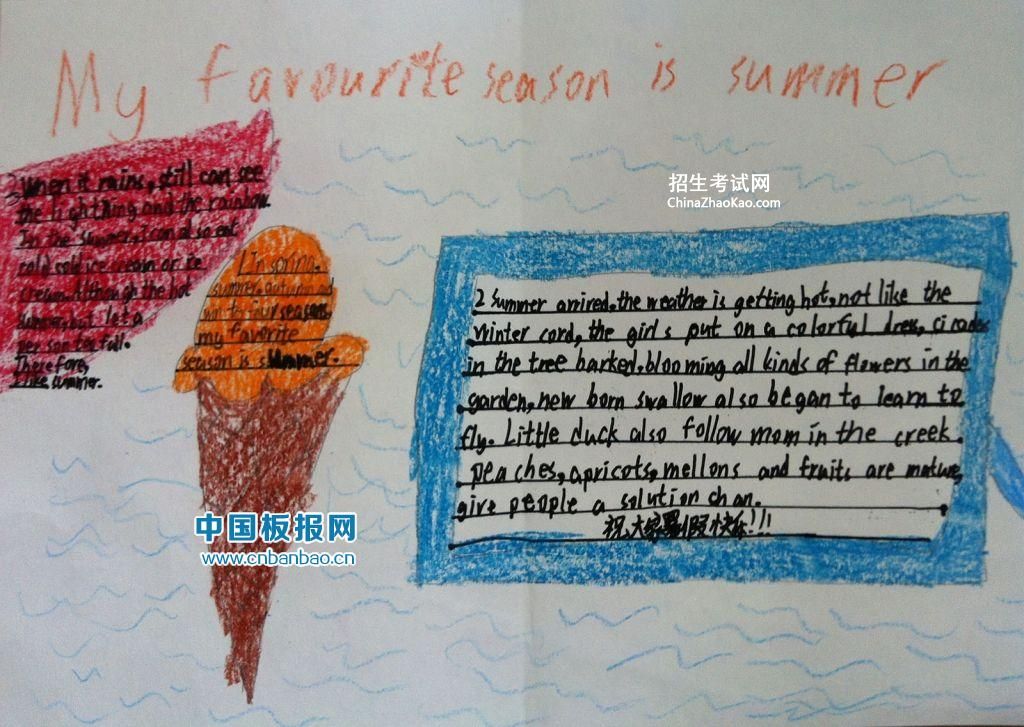 My favourite season is summer
招生考试网
ChinaZhaoKao.com
1 In spring,
summer, autumn and
win te four season,
my favorite
season is summer.
2 summer arrired, the weather is getting hot, not like the
winter cord, the girl s put on a colorful dress, ci cadas
in the tree barked, blooming all kinds of flowers in the
garden, new born swallow also began to learn to
fly. Little duck also follow mom in the creek.
peaches, apricots, mellons and fruits are mature,
give people a solution chan.
祝大家暑假快乐!!!
3 When it rains, still can see
the lighthing and the rainbow.
In the summer, I can also eat
cold cold ice cream or ice
cream. Although the hot
summer, but let a
person ful.
Therefore,
I like summer.
中国板报网
www.cnbanbao.cn